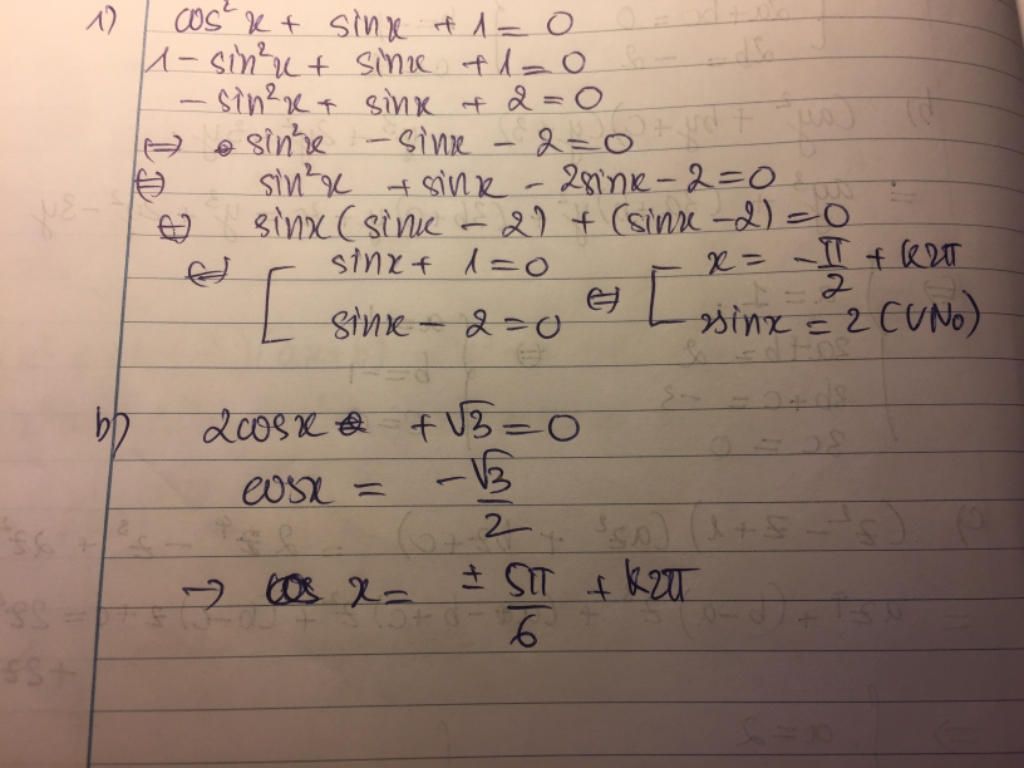 1) cos²x + sinx + 1 = 0
1 - sin²x + sinx + 1 = 0
- sin²x + sinx + 2 = 0
⇔ sin²x - sinx - 2 = 0
⇔ sin²x + sinx - 2sinx - 2 = 0
⇔ sinx(sinx - 2) + (sinx - 2) = 0
⇔ [ sinx + 1 = 0 ⇔ [ x = -π/2 + k2π
sinx - 2 = 0 sinx = 2 (VNo)
b) 2cosx + √3 = 0
cosx = -√3/2
→ x = ± 5π/6 + k2π